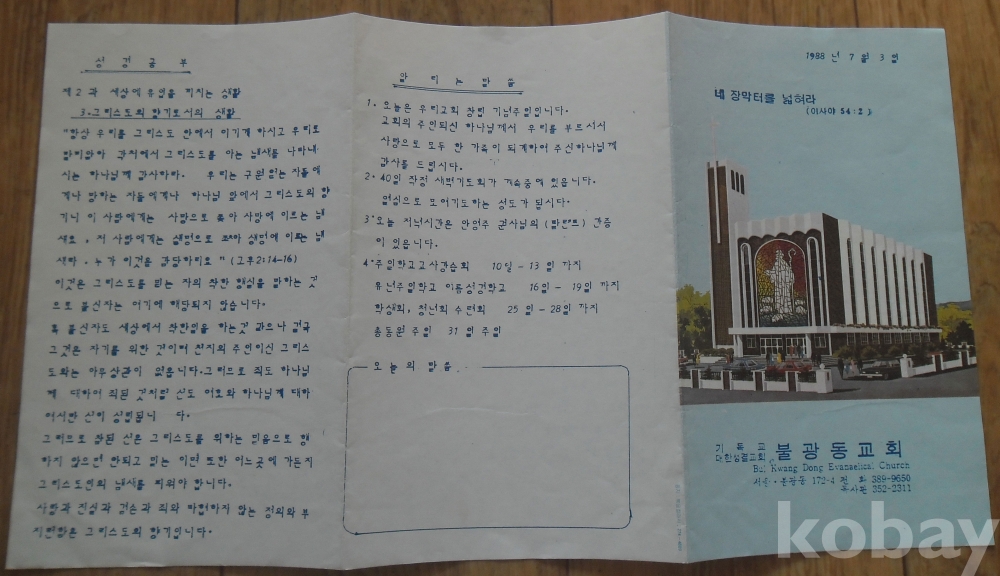 성경공부
제2과 세상에 유업을 끼치는 생활
3. 그리스도의 향기로서의 생활
"항상 우리를 그리스도 안에서 이기게 하시고 우리로
말미암아 각처에서 그리스도를 아는 냄새를 나타내
시는 하나님께 감사하라. 우리는 구원 얻는 자들에
게나 망하는 자들에게나 하나님 앞에서 그리스도의 향
기니 이 사람에게는 사망으로 좇아 사망에 이르는 냄
새로, 저 사람에게는 생명으로 좇아 생명에 이르는 냄
새라. 누가 이것을 감당하리요" (고후2:14-16)
이것은 그리스도를 믿는 자의 착한 행실을 말하는 것
으로 불신자는 여기에 해당되지 않습니다.
혹 불신자도 세상에서 착한일을 하는것 같으나 결국
그것은 자기를 위한 것이며 천지의 주인이신 그리스
도와는 아무상관이 없읍니다. 그러므로 죄도 하나님
께 대하여 죄된 것처럼 선도 여호와 하나님께 대하
여서만 선이 성립됩니 다.
그러므로 참된 선은 그리스도를 위하는 믿음으로 행
하지 않으면 안되고 믿는 이면 또한 어느곳에 가든지
그리스도인의 냄새를 피워야 합니다.
사랑과 진실과 겸손과 죄와 타협하지 않는 정의와 부
지런함은 그리스도의 향기입니다.
알리는말씀
1. 오늘은 우리교회 창립 기념주일입니다.
교회의 주인되신 하나님께서 우리를 부르시사
사랑으로 모두 한 가족이 되게하여 주신하나님께
감사를 드립시다.
2. 40일 작정 새벽기도회가 계속중에 있읍니다.
열심으로 모여기도하는 성도가 됩시다.
3. 오늘 저녁시간은 안영주 권사님의 (탈렌트) 간증
이 있읍니다.
4. 주일학교교사강습회 10일 - 13일 까지
유년주일학교 여름성경학교 16일 - 19일 까지
학생회, 청년회 수련회 25일 - 28일 까지
총동원 주일 31일 주일
오늘의 말씀
1988년 7월 3일
네 장막터를 넓혀라
(이사야 54:2)
기독교
대한성결교회 불광동교회
Bul Kwang Dong Evangelical Church
서울·불광동 172-4 전화 389-9650
목사관 352-2311
kobay